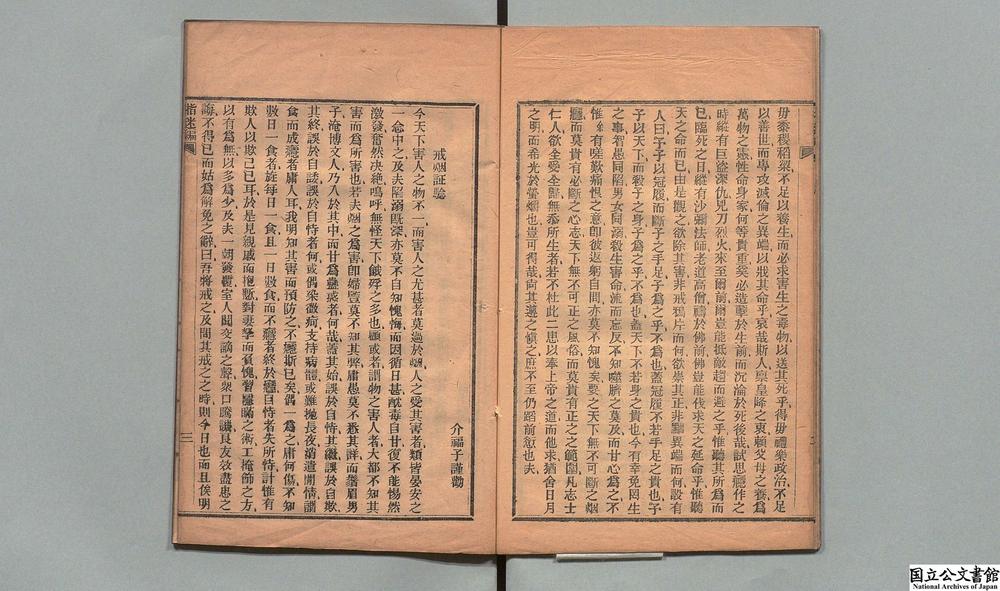 毋黍稷稻粱不足以養生而必求害生之毒物以送其死乎得毋禮樂政治不足
以善世而專攻滅倫之異端以戕其命乎哀哉斯人稟皇降之衷賴父母之養爲
萬物之靈性命身家何等貴重奚必造孽於生前而沉淪於死後哉試思癮作之
時縱有巨盜深仇見刀烈火來至爾前爾豈能抵敵趨而避之乎惟聽其所爲而
已臨死之日縱有沙彌法師老道高僧禱於佛前佛豈能伐求天之延命乎惟聽
天之命而已由是觀之欲除其害非戒鴉片而何欲崇其正非黜異端而何設有
人曰予子以冠履而斷子之手足子爲之乎不爲也蓋冠履不若手足之貴也予
子以天下而殺子之身子爲之乎不爲也蓋天下不若身之貴也今有幸免罔生
之事智愚同陷男女同溺殺生害命流而忘反不知噬臍之莫及而甘心爲之不
惟有嗟歎痛恨之意卽彼返躬自問亦莫不知愧矣要之天下無不可斷之烟
癮而莫貴有必斷之心志天下無不可正之風俗而莫貴有正之之範圍凡志士
仁人欲全受全歸無忝所生者若不杜此二患以奉上帝之道而他求猶舍日月
之明而希光於螢爝也豈可得哉尙其遵之愼之庶不至仍蹈前愆也夫
戒烟証騐
介福子謹勸
今天下害人之物不一而害人之尤甚者莫過於烟人之受其害者類皆晏安之
一念中之及夫陷溺旣深亦莫不自知愧悔而因循日甚酖毒自甘復不能惕然
激發奮然决絶嗚呼無怪天下餓殍之多也顧或者謂物之害人者大都不知其
害而爲所害也若夫烟之爲害卽婦豎莫不知其弊庸愚莫不悉其詳而鬚眉男
子淹博文人乃入於其中而甘爲蠱惑者何哉蓋其始誤於自恃其繼誤於自欺
其終誤於自諉誤於自恃者何或偶染微疴支持病體或難抛長夜消遣閒情謂
食而成癮者庸人耳我明知其害而預防之不癮斯已矣偶一爲之庸何傷不知
數日一食者旋每日一食且一日數食而不癮者終於癮自恃者失所恃計惟有
欺人以欺己已耳於是見親戚而抱慙對妻孥而負愧習躱瞞之術工掩飾之方
以有爲無以多爲少及夫一朝發覆室人聞交謫之聲衆口騰譏良友效盡忠之
誨不得已而姑爲解免之辭曰吾將戒之及問其戒之之時則今日也而且俟明
指迷編
三
国立公文書館
National Archives of Japan